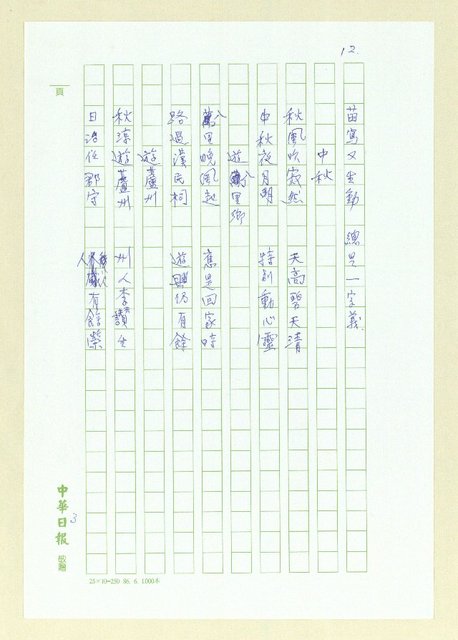 12.
苗寫又生動 總是一字義
中秋
秋風吹寂然 天高碧天清
中秋夜月明 特别動心靈
遊八里鄉
八里晚風起 應是回家時
路過漢民祠 遊興仍有餘
遊蘆州
秋淳遊蘆州 州人李讚生
日治任郡守 有餘榮
頁
中華日報 敬贈
3
25×10=250 86. 6. 1000本